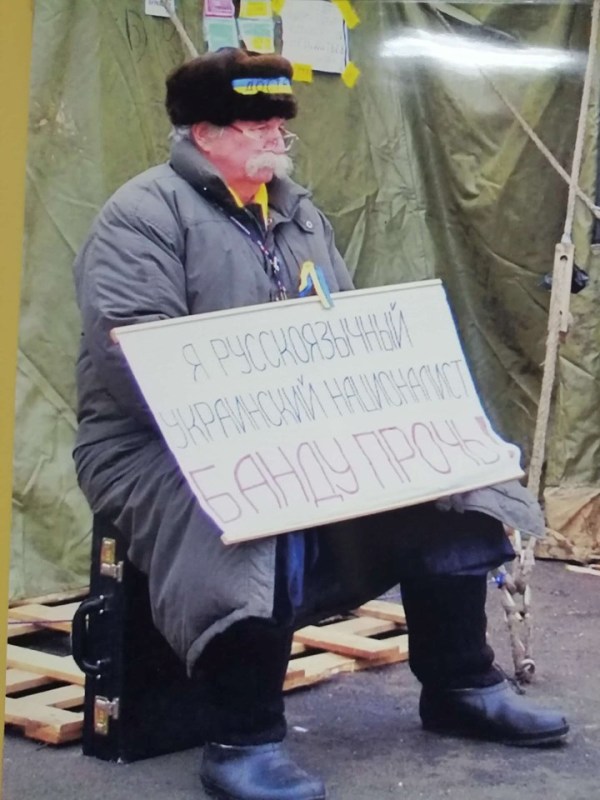 Я РУССКОЯЗЫЧНЫЙ
УКРАИНСКИЙ НАЦИОНАЛИСТ
БАНДУ ПРОЧЬ!